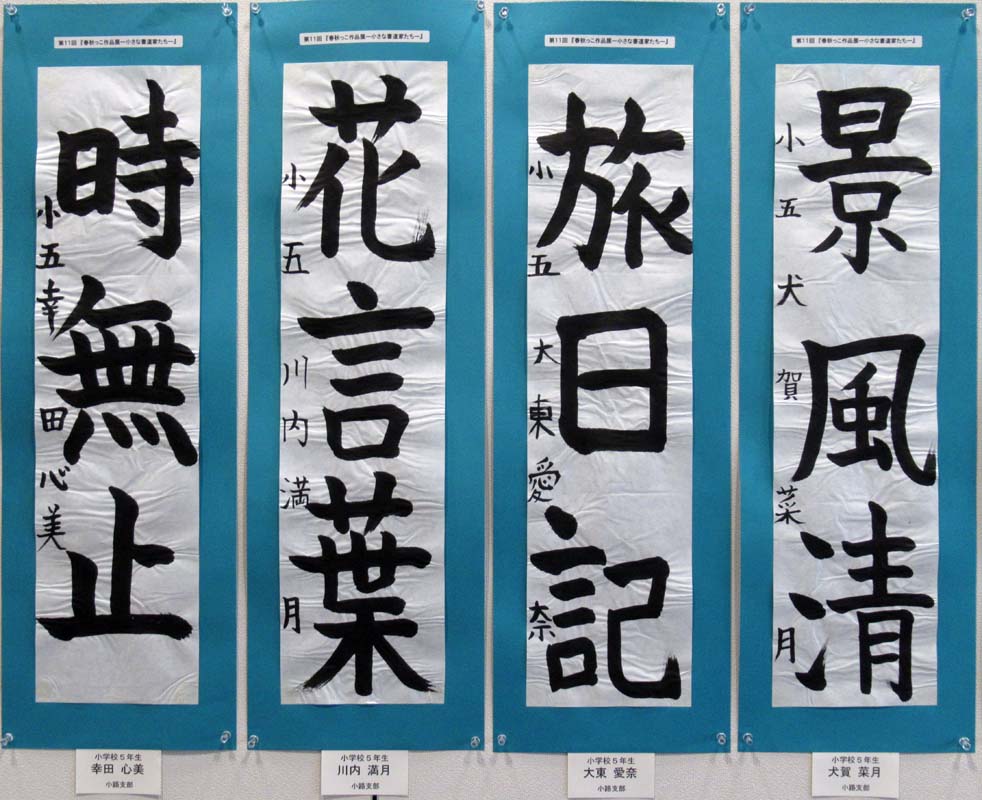 第11回『春秋っこ作品展ー小さな書道家たちー』
時無止
小五幸田心美
小学校5年生
幸田 心美
小路支部
第11回『春秋っこ作品展ー小さな書道家たちー』
花言葉
小五川内満月
小学校5年生
川内 満月
小路支部
第11回『春秋っこ作品展ー小さな書道家たちー』
旅日記
小五大東愛奈
小学校5年生
大東 愛奈
小路支部
第11回『春秋っこ作品展ー小さな書道家たちー』
景風清
小五犬賀菜月
小学校5年生
犬賀 菜月
小路支部